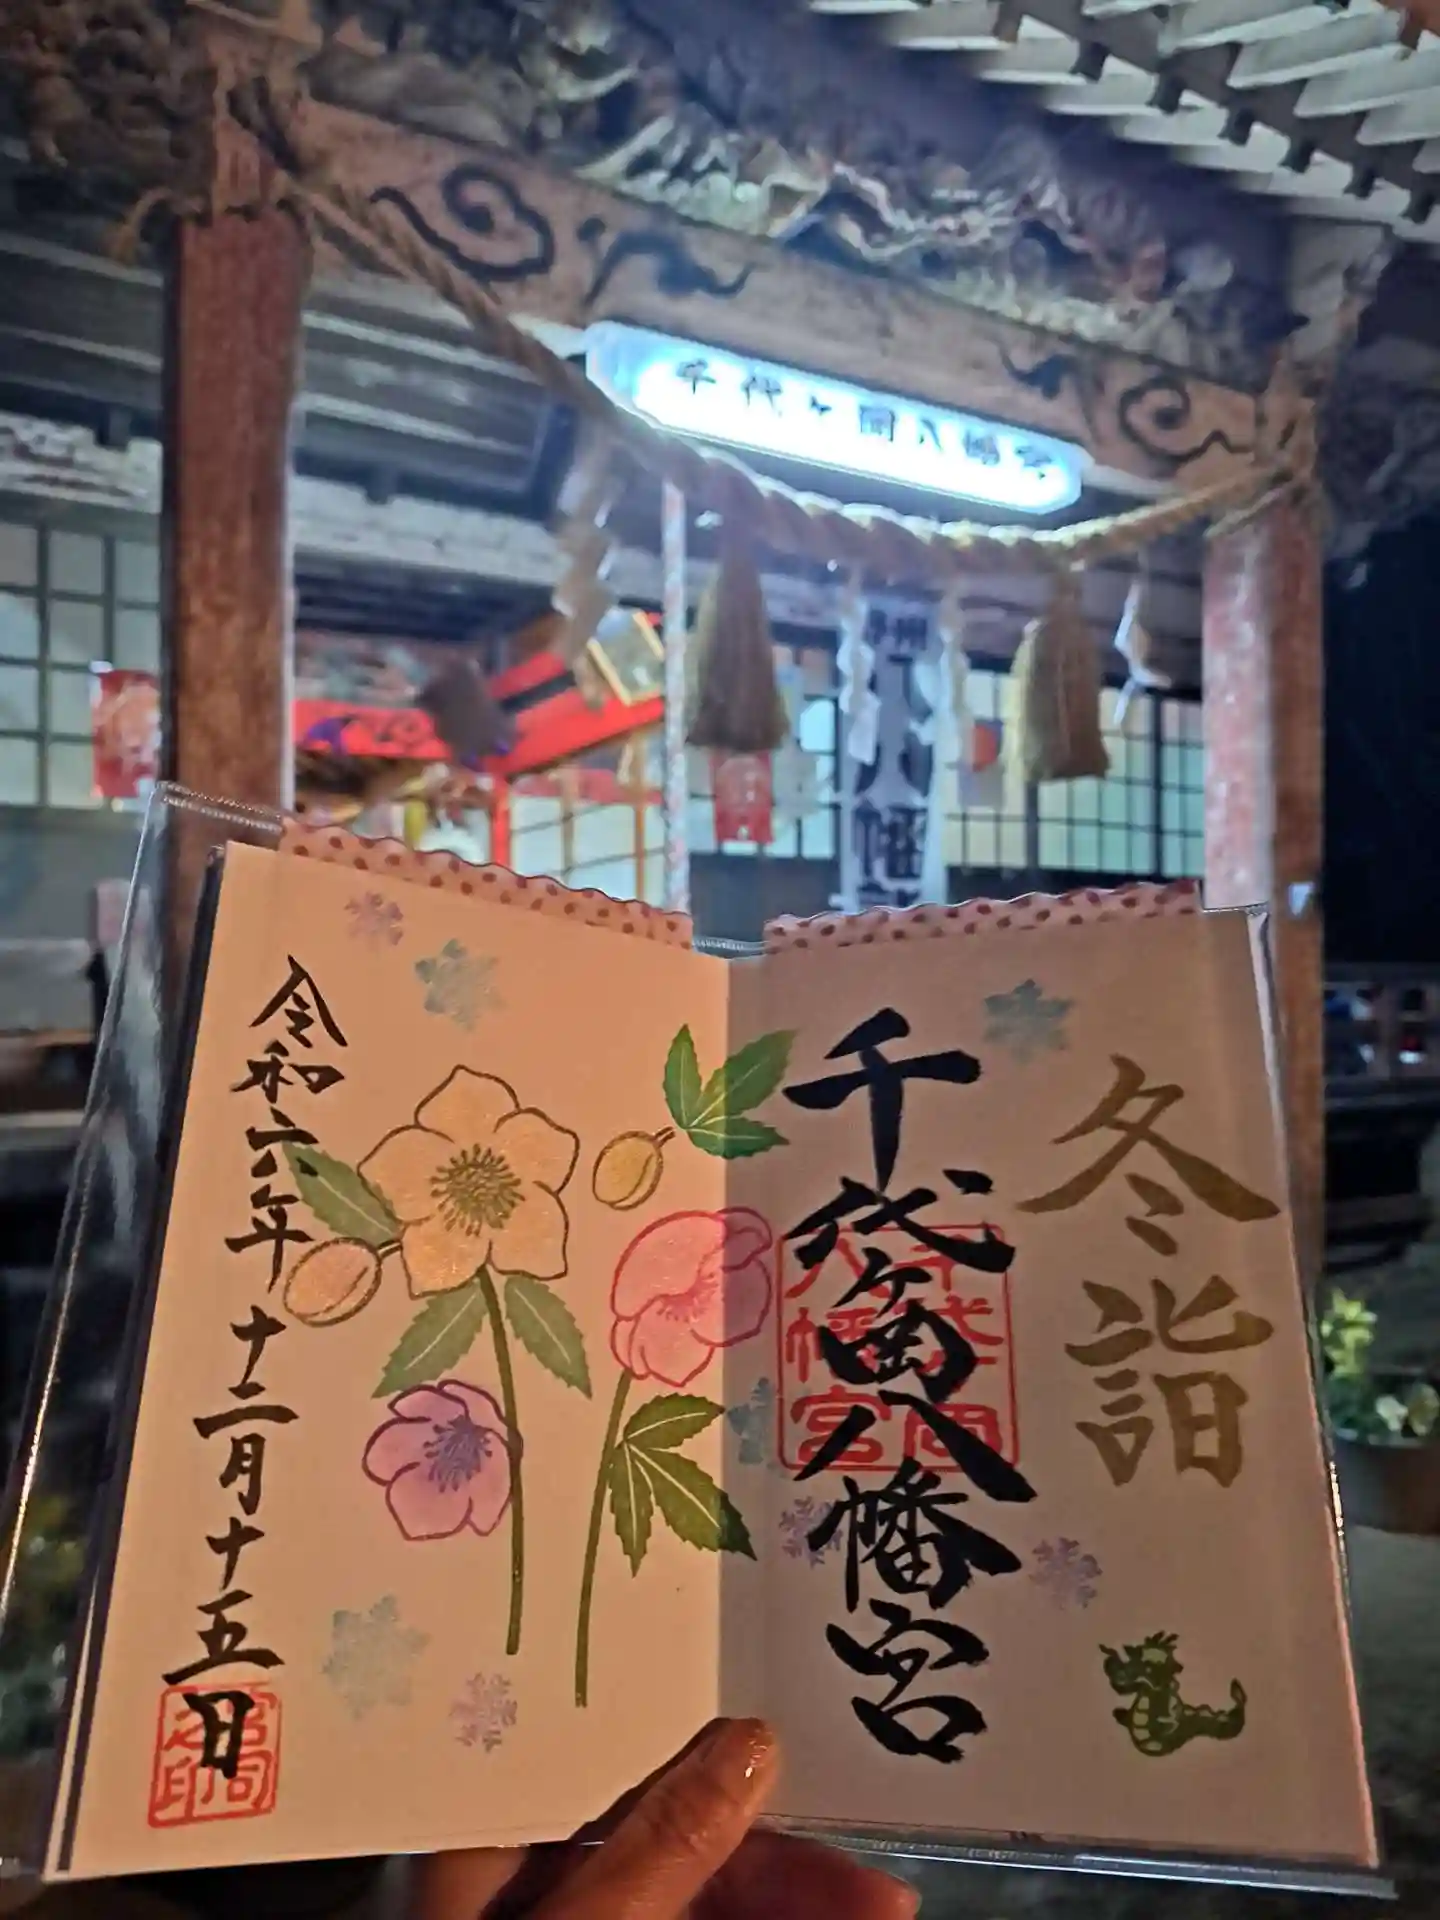 千代ヶ岡八幡宮
冬詣
千代ヶ岡八幡宮
千代ヶ岡
八幡宮
令和六年十二月十五日
宮司
之印